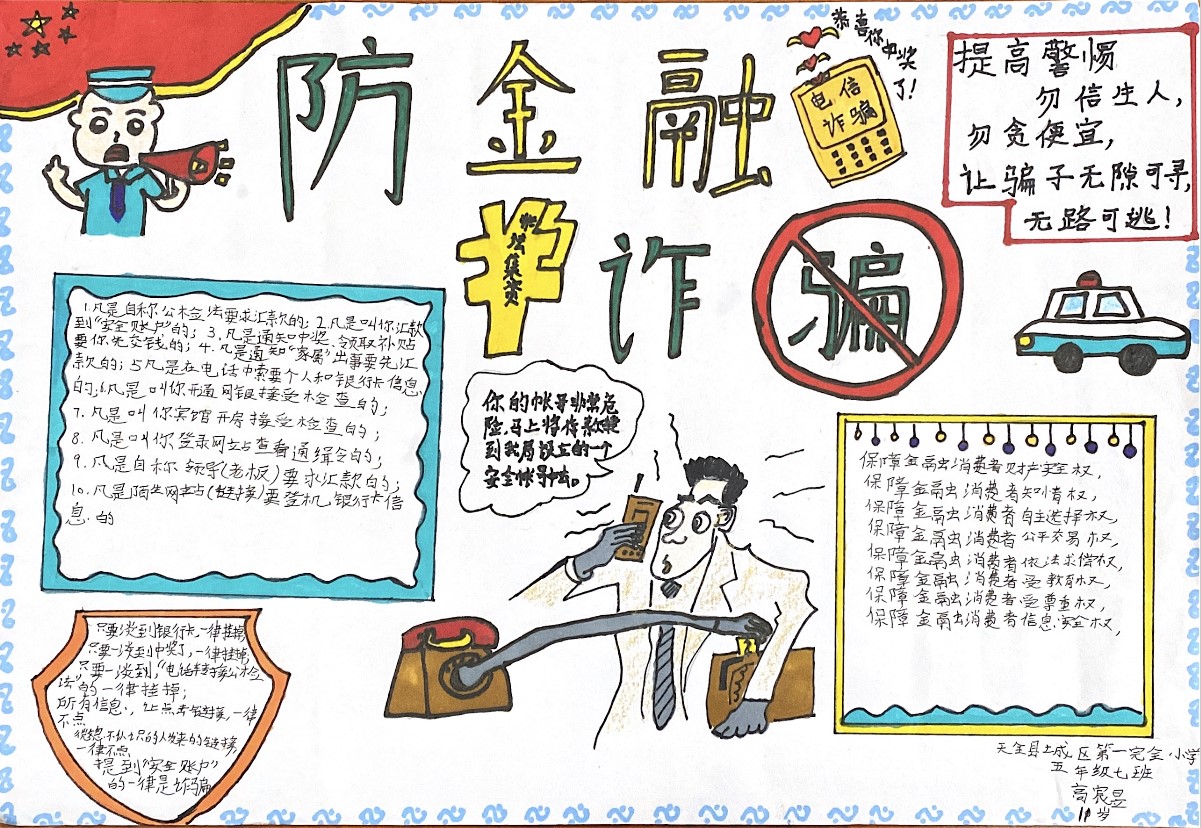 防金融
诈骗
非法集资
恭喜你中奖了!
电信
诈骗
提高警惕
勿信生人,
勿贪便宜,
让骗子无隙可寻,
无路可逃!
1.凡是自称公检法要求汇款的; 2.凡是叫你汇款
到"安全账户"的; 3.凡是通知中奖、领取补贴
要你先交钱的; 4.凡是通知"家属"出事要先汇
款的; 5凡是在电话中索要个人和银行卡信息
的; 6凡是叫你开通网银接受检查的;
7.凡是叫你宾馆开房接受检查的;
8.凡是叫你登录网站查看通缉令的;
9.凡是自称领导(老板)要求汇款的;
10.凡是陌生网站(链接)要登机银行卡信
息的
你的帐号非常危
险,马上将存款
到我局设立的一个
安全帐号中去。
保障金融消费者财产安全权,
保障金融消费者知情权,
保障金融消费者自主选择权,
保障金融消费者公平交易权,
保障金融消费者依法求偿权,
保障金融消费者受教育权,
保障金融消费者受尊重权,
保障金融消费者信息安全权,
只要谈到银行卡,一律挂掉,
只要一谈到中奖了,一律挂掉,
只要一谈到,"电话转接公检
法"的一律挂掉;
所有信息,让点击链接,一律
不点
微信不认识的人发来的链接,
一律不点
提到"安全账户"
的一律是诈骗
天全县城区第一完全小学
五年级七班
高宸昱
11岁